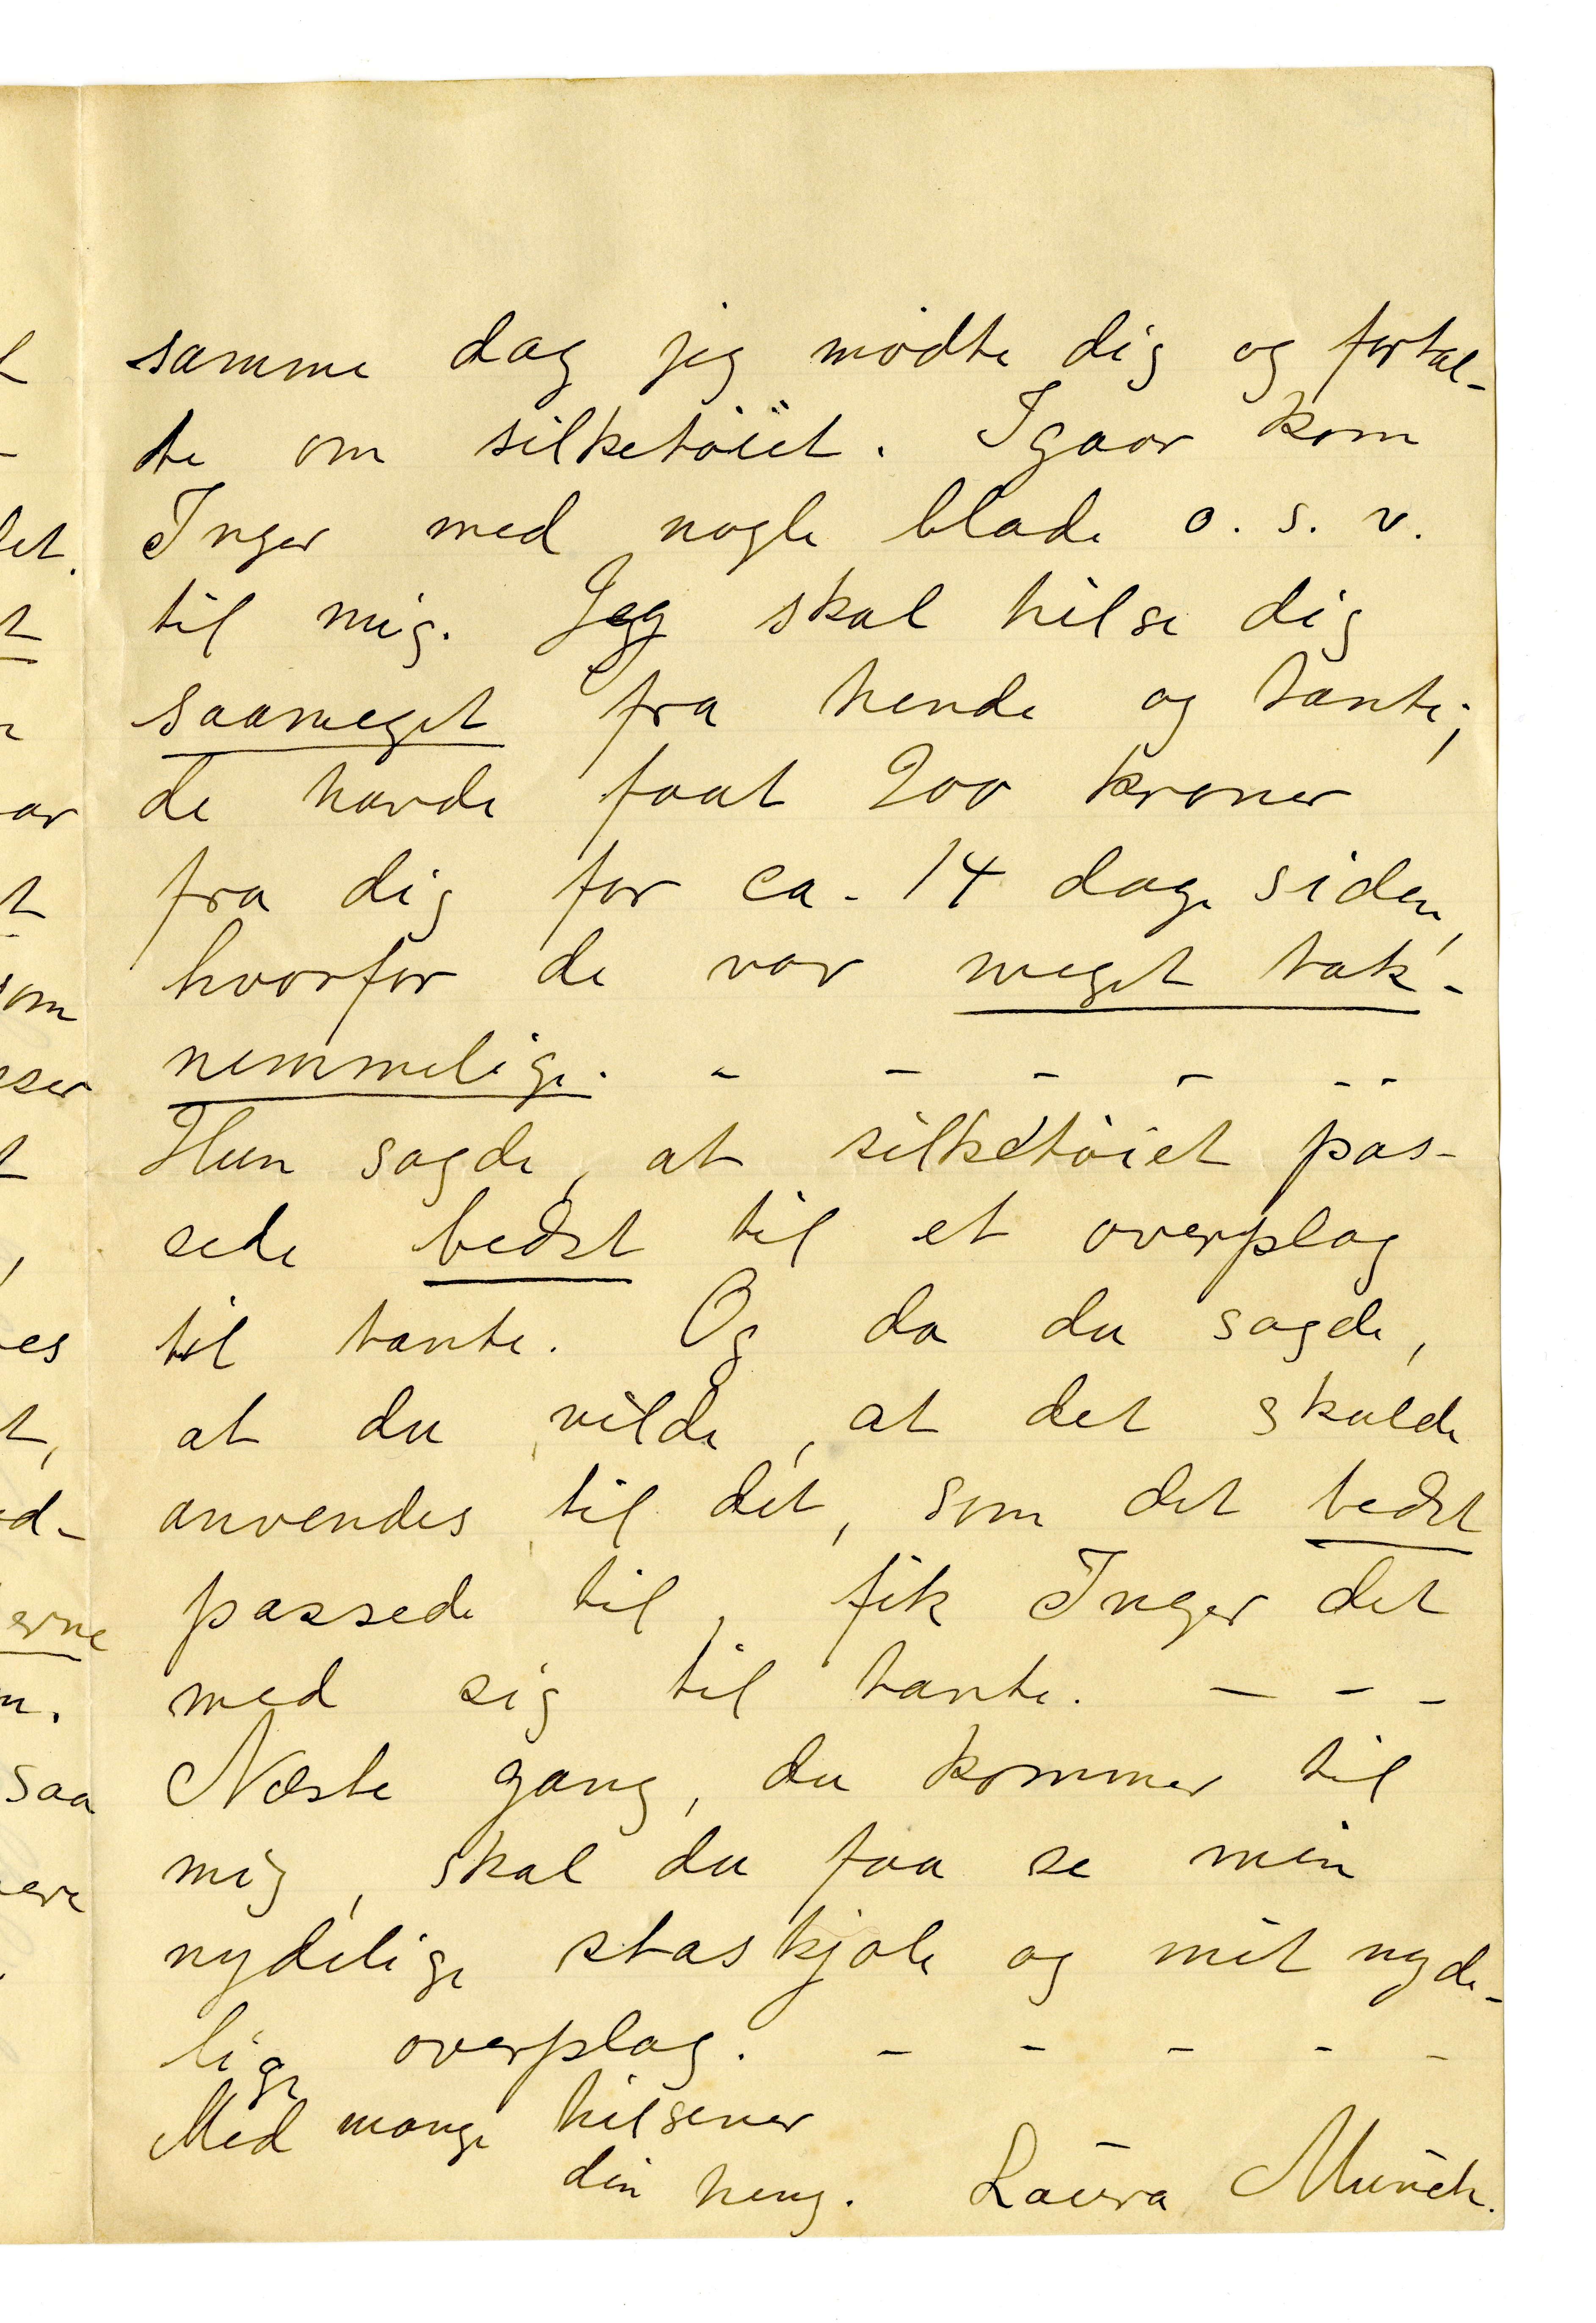 samme dag jeg mødte dig og fortal-
te om silketøiet. Igaar kom
Inger med nogle blade o. s. v.
til mig. Jeg skal hilse dig
saameget fra hende og tante;
de havde faat 200 kroner
fra dig for ca. 14 dage siden,
hvorfor de var meget tak-
nemmelige. - - - - - -
Hun sagde, at silketøiet pas-
sede bedst til et overplag
til tante. Og da du sagde,
at du vilde, at det skulde
anvendes til dét, som det bedst
passede til, fik Inger det
med sig til tante. - - -
Næste gang, du kommer til
mig, skal du faa se min
nydelige staskjole og mit nyde-
lige overplag. - - - - -
Med mange hilsener
din heng. Laura Munch.